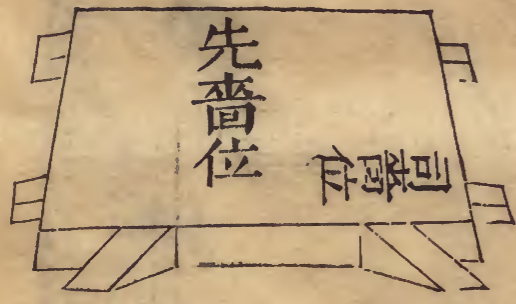 先嗇位
司嗇位